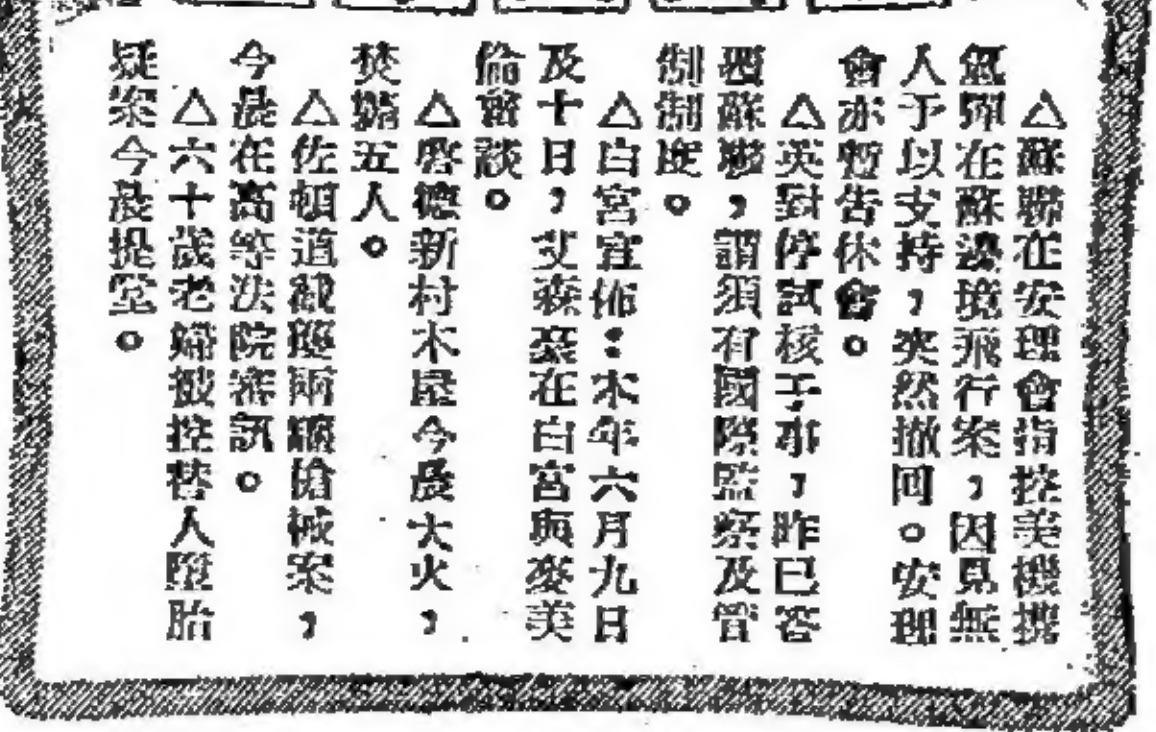 △蘇聯在安理會指控美機攜
氫彈在蘇邊境飛行案，因見無
人予以支持，突然撤回。安理
會亦暫告休會。
△英對停試核子事，昨已答
覆蘇聯，謂須有國際監察及管
制制度。
△白宮宣佈：本年六月九日
及十日，艾森豪在白宮與麥美
倫會談。
△磨德新村木屋今晨大火，
焚斃五人。
△佐頓道截獲兩曠槍械案，
今晨在高等法院審訊。
△六十歲老婦被控替人墮胎
疑案今晨提堂。